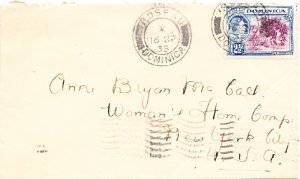 ROSEAU
16 SP
39
DOMINICA
DOMINICA
2½
Anne Bryan McCall
Woman's Home Comp.
New York City
U.S.A.